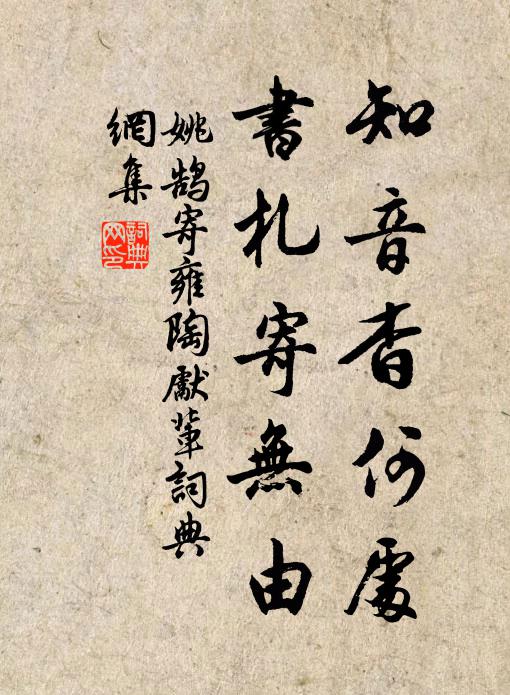 知音杳何處
書札寄無由
姚鵠寄雍陶獻輩詞典
網集
詞典
网印